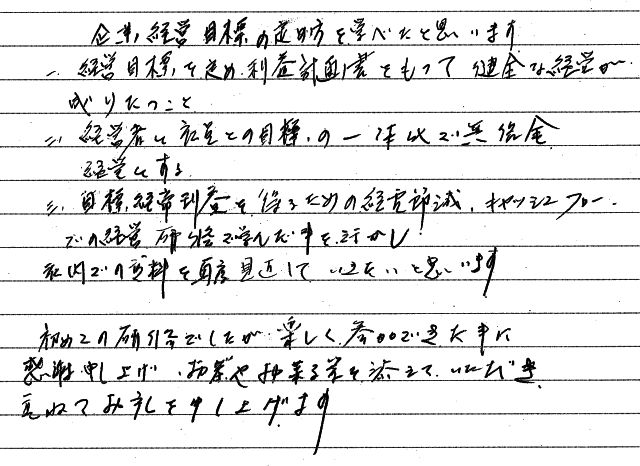 企業経営目標の定め方を学べたと思います
一、経営目標を定め利益計画書をもって健全な経営が
成りたつこと
二、経営者と社員との目標の一体化で無借金
経営とする
三、目標経常利益を得るための経費節減、キャッシュフロー
での経営研修で学んだ事を活かし
社内での資料を再度見直していきたいと思います
初めての研修でしたが楽しく参加できた事に
感謝申し上げ、お茶やお菓子等を添えていただき
重ねてお礼を申し上げます